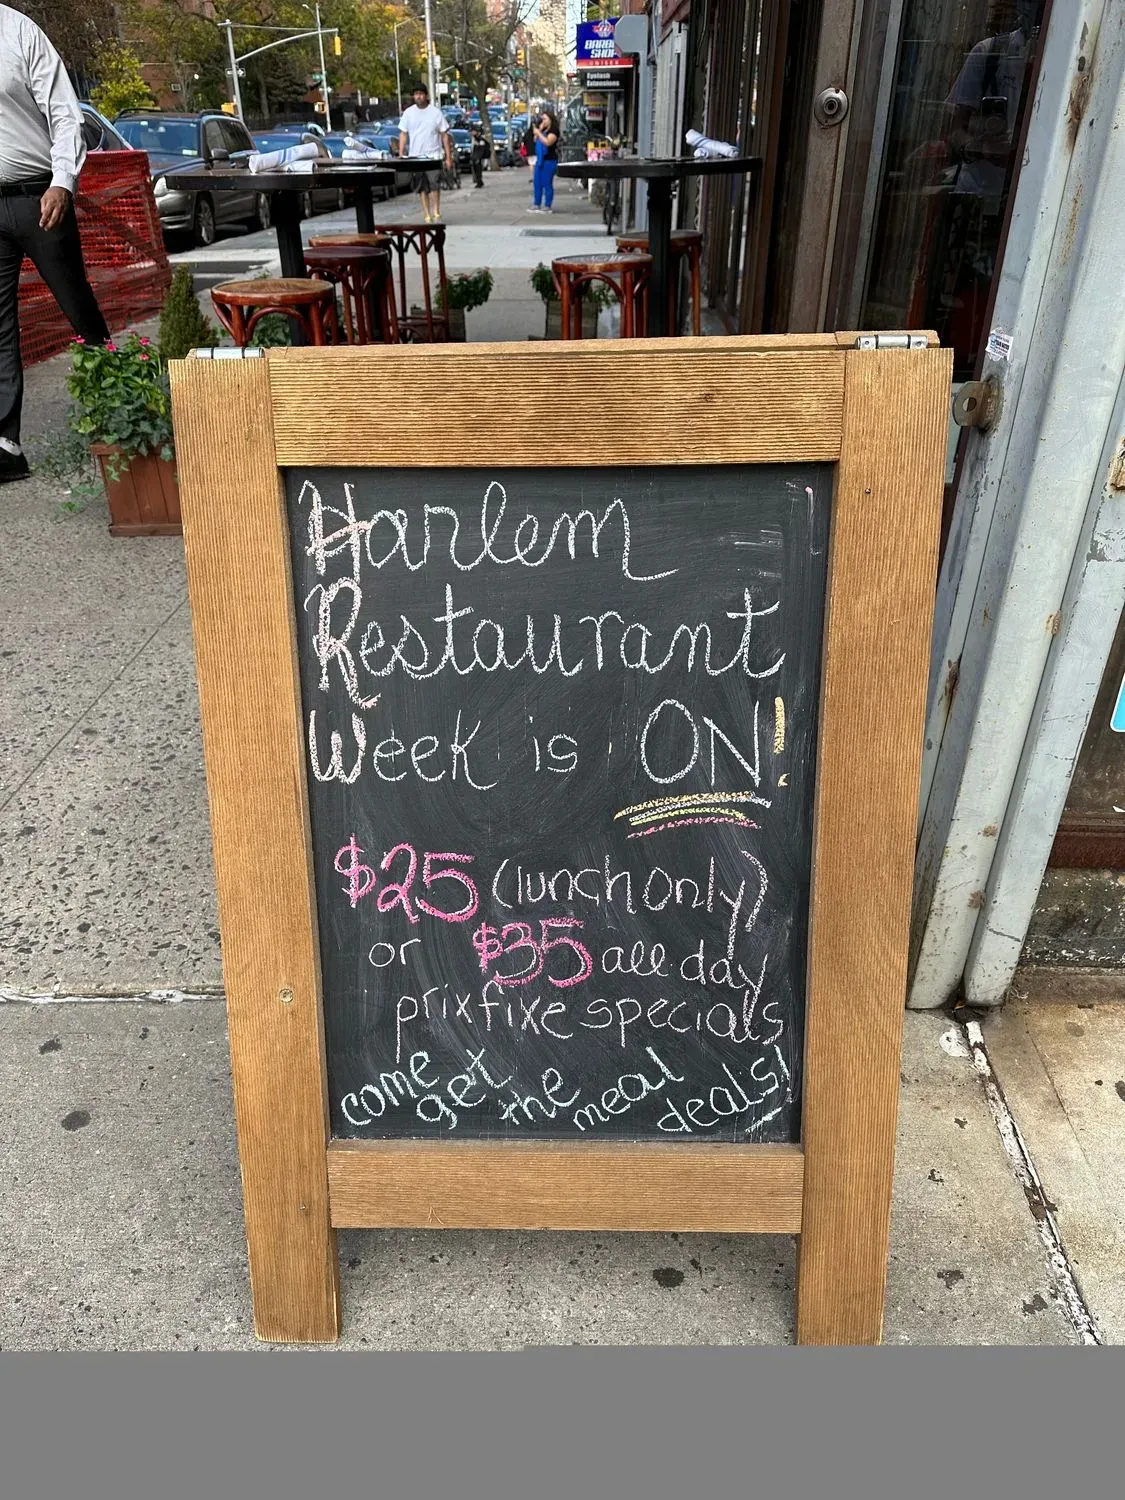 BARBER
SHOP
UNISEX
Eyelash
Extensions
Harlem
Restaurant
Week is ON!
$25 (lunch only)
or $35 all day
prix fixe specials
come get the meal deals!